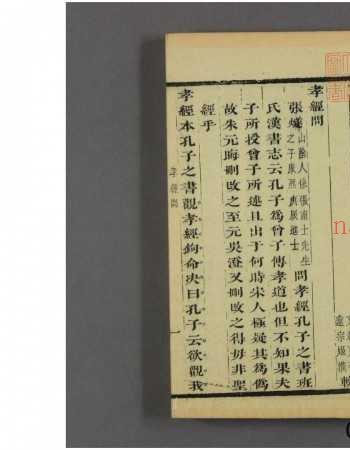 孝經問
張燧山陰人係張南士先生之子康熙庚辰進士問孝經孔子之書班
氏漢書志云孔子為曾子傳孝道也但不知果夫
子所授曾子所述且出于何時宋人極疑其為偽
故朱元晦刪改之至元吳澄又刪改之得毋非聖
經乎
孝經本孔子之書觀孝經鉤命決曰孔子云欲觀我
孝經問